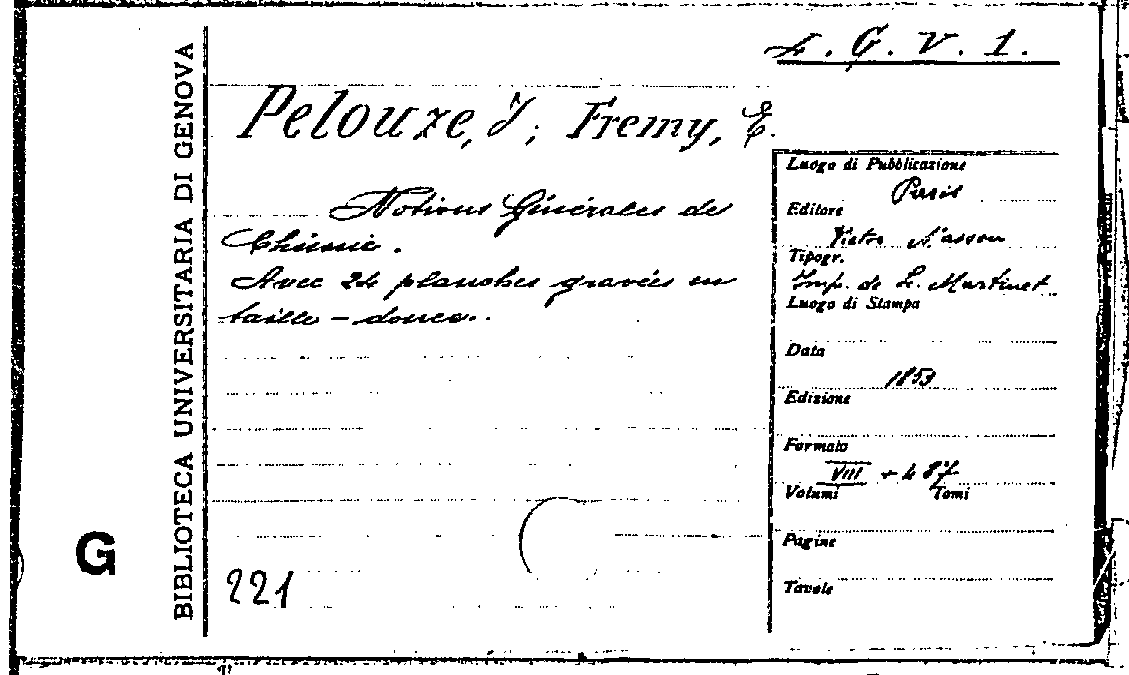 4. G. V. 1.
Pelouze, J; Fremy, E.
Notions Générales de
Chimie.
Avec 24 planches gravées en
taille-douce.
221
BIBLIOTECA UNIVERSITARIA DI GENOVA
G
Luogo di Pubblicazione
Paris
Editore
Victor Masson
Tipogr.
Imp. de L. Martinet
Luogo di Stampa
Data
1853
Edizione
Formato
VIII + 487
Volumi Tomi
Pagine
Tavole